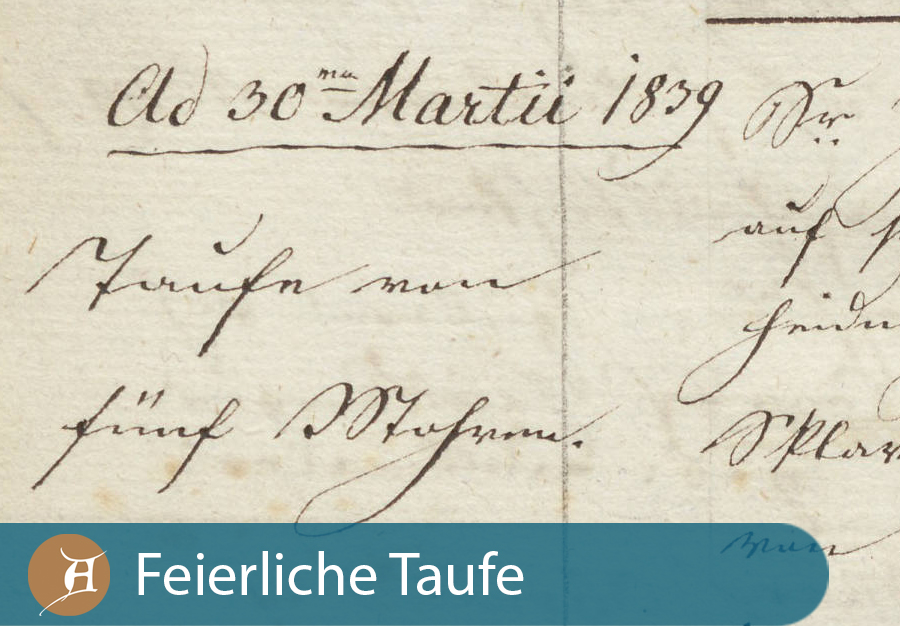 Ad 30ma Martii 1839
Taufe von
fünf Mohren.
Sr
auf
heidn
Sklav
von
A
Feierliche Taufe